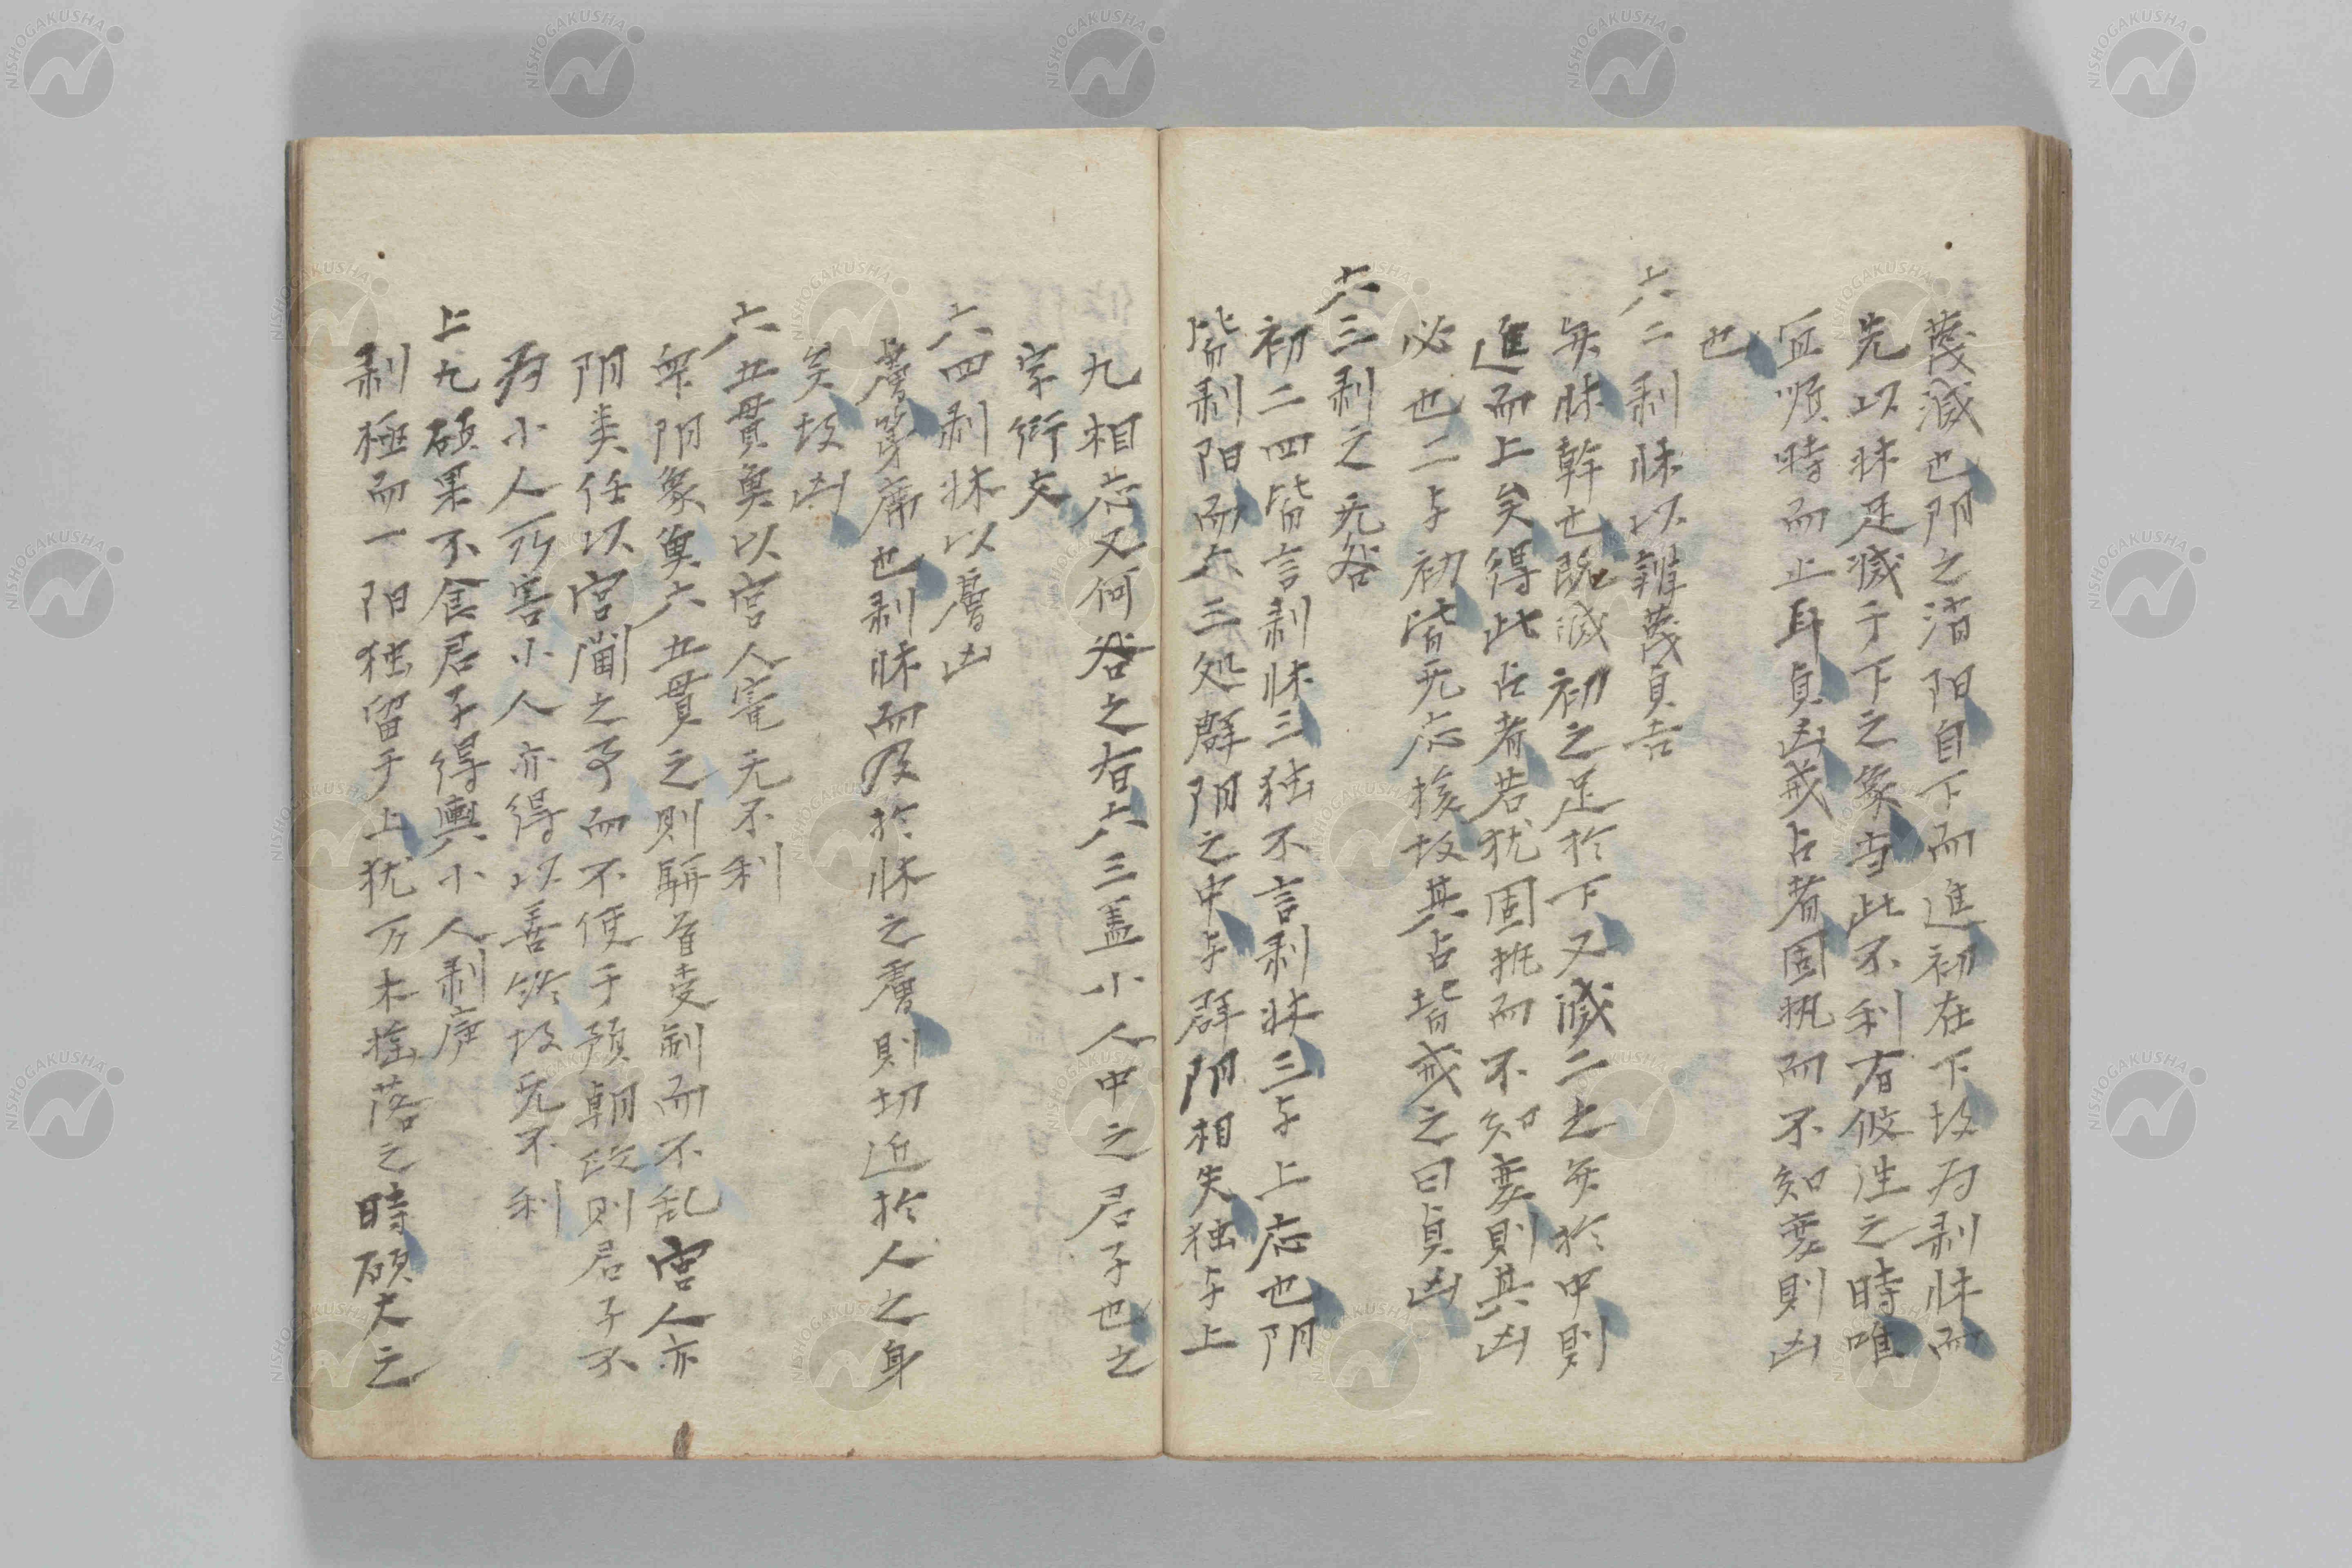 蔑滅也阴之消阳自下而進初在下故為剥牀而
先以牀足滅于下之象当此不利有攸往之時唯
宜順時而止耳貞凶戒占者固执而不知変則凶
也
六二剥牀以辨蔑貞吉
牀幹也既滅初之足於下又滅二之於中則
進而上矣得此占者若犹固执而不知変則其凶
必也二与初皆无応援故其占皆戒之曰貞凶
六三剥之无咎
初二四皆言剥牀三独不言剥牀三与上応也阴
皆剥阳而六三処群阴之中与群阴相失独与上
九相応又何咎之有六三盖小人中之君子也之
字衍文
六四剥牀以膚凶
膚席也剥牀而及於牀之膚則切近於人之身
矣故凶
六五貫魚以宮人寵无不利
阴象魚六五貫之則駢首受制而不乱宮人亦
阴类任以宮闈之事而不使于預朝政則君子不
為小人所害小人亦得以善終故无不利
上九碩果不食君子得輿小人剥庐
剥極而一阳独留于上犹万木揺落之時碩大之
NISHOGAKUSHA